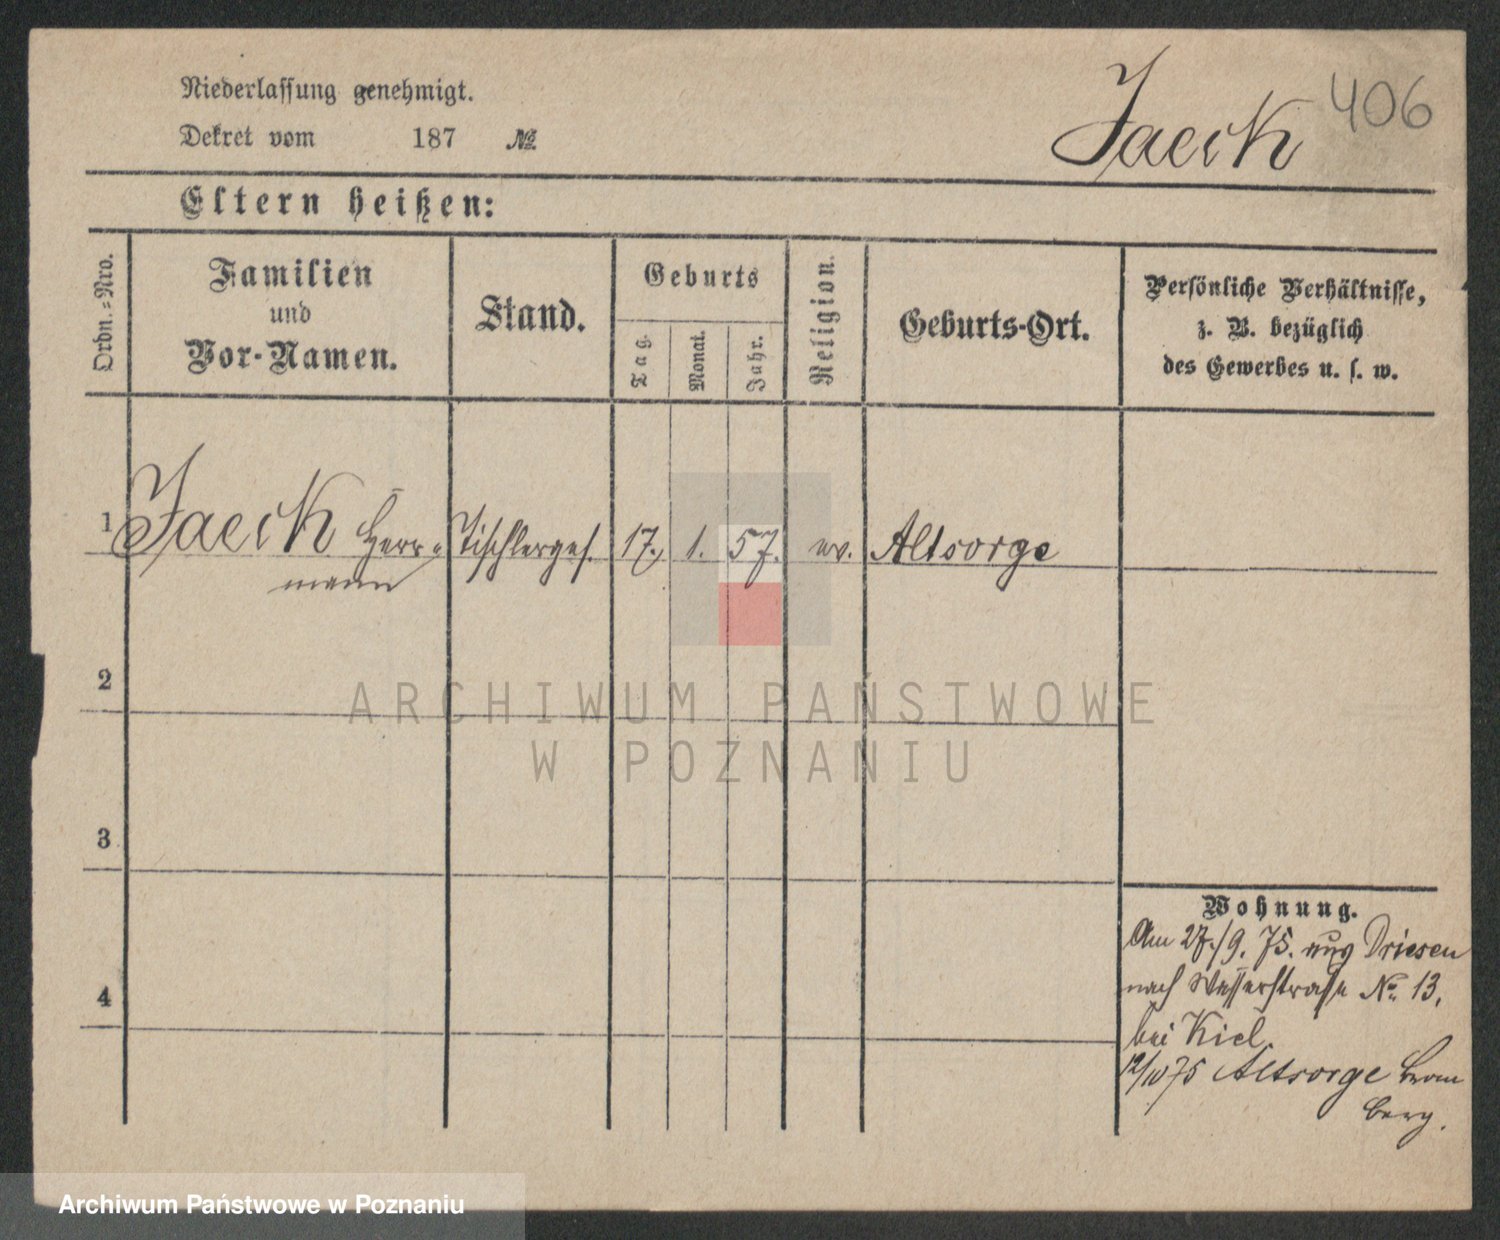 Niederlassung genehmigt.
Dekret vom 187 №
Jaeck
406
Eltern heißen:
Ordn.=Nro.
Familien
und
Vor-Namen.
Stand.
Geburts
Tag.
Monat.
Jahr.
Religion.
Geburts-Ort.
Persönliche Verhältnisse,
z. B. bezüglich
des Gewerbes u. s. w.
1 Jaeck Herr= Tischlerges. 17. 1. 57. ev. Altsorge
mann
2
3
4
ARCHIWUM PAŃSTWOWE
W POZNANIU
Wohnung.
Am 27./9. 75. aus Driesen
nach Wasserstrasse No. 13,
bei Kiel.
12/10 75 Altsorge Brom
berg.
Archiwum Państwowe w Poznaniu